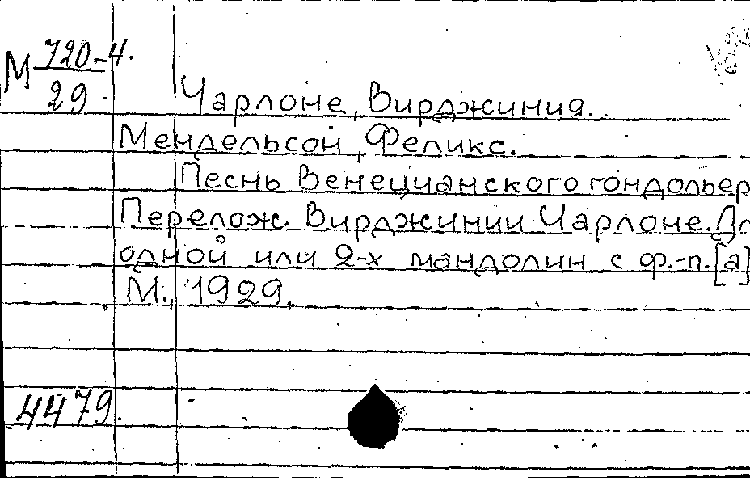 М 720-4.
29
Чарлоне, Вирджиния.
Мендельсон, Феликс.
Песнь Венецианского гондольер
Перелож. Вирджинии Чарлоне. Дл
одной или 2-х мандолин с ф.-п. [а]
М., 1929.
4479.